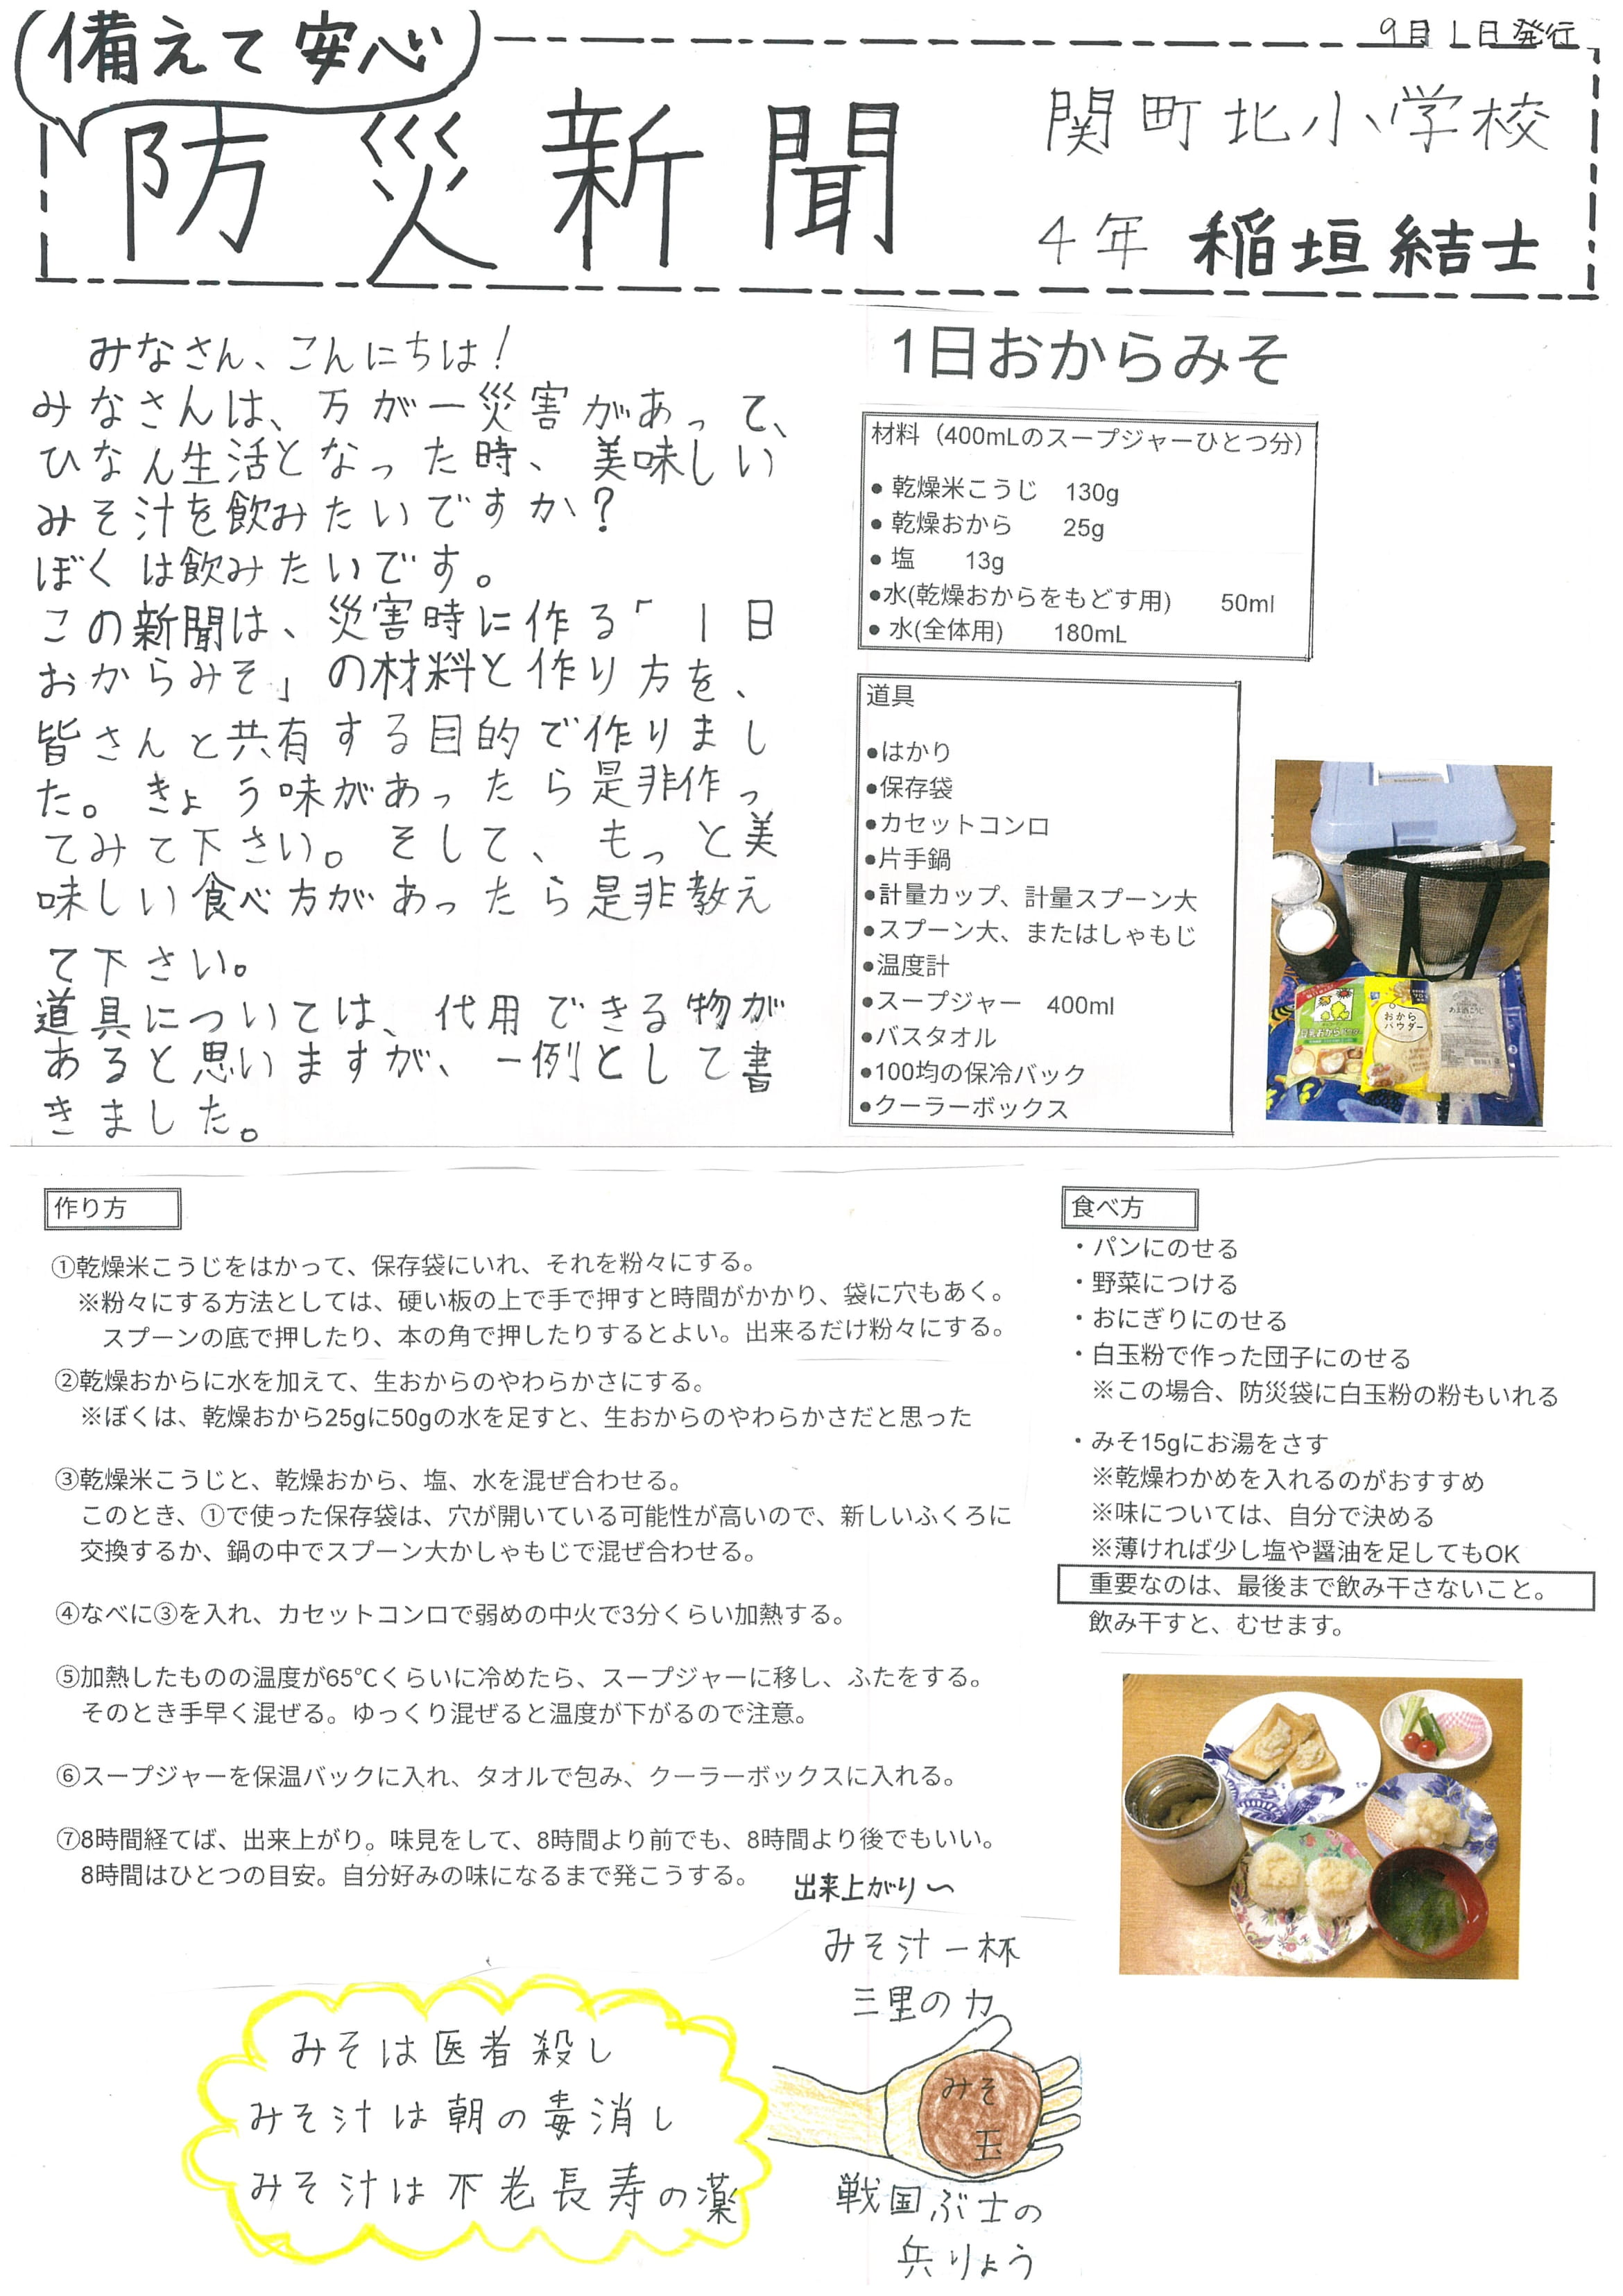 備えて安心
防災新聞
9月1日発行
関町北小学校
4年 稲垣結士
みなさん、こんにちは!
みなさんは、万が一災害があって、
ひなん生活となった時、美味しい
みそ汁を飲みたいですか?
ぼくは飲みたいです。
この新聞は、災害時に作る「1日
おからみそ」の材料と作り方を、
皆さんと共有する目的で作りまし
た。きょう味があったら是非作っ
てみて下さい。そして、もっと美
味しい食べ方があったら是非教え
て下さい。
道具については、代用できる物が
あると思いますが、一例として書
きました。
1日おからみそ
材料(400mLのスープジャーひとつ分)
● 乾燥米こうじ 130g
● 乾燥おから 25g
● 塩 13g
●水(乾燥おからをもどす用) 50ml
● 水(全体用) 180mL
道具
●はかり
●保存袋
●カセットコンロ
●片手鍋
●計量カップ、計量スプーン大
●スプーン大、またはしゃもじ
●温度計
●スープジャー 400ml
●バスタオル
●100均の保冷バック
●クーラーボックス
おから
パウダー
作り方
①乾燥米こうじをはかって、保存袋にいれ、それを粉々にする。
※粉々にする方法としては、硬い板の上で手で押すと時間がかかり、袋に穴もあく。
スプーンの底で押したり、本の角で押したりするとよい。出来るだけ粉々にする。
②乾燥おからに水を加えて、生おからのやわらかさにする。
※ぼくは、乾燥おから25gに50gの水を足すと、生おからのやわらかさだと思った
③乾燥米こうじと、乾燥おから、塩、水を混ぜ合わせる。
このとき、①で使った保存袋は、穴が開いている可能性が高いので、新しいふくろに
交換するか、鍋の中でスプーン大かしゃもじで混ぜ合わせる。
④なべに③を入れ、カセットコンロで弱めの中火で3分くらい加熱する。
⑤加熱したものの温度が65℃くらいに冷めたら、スープジャーに移し、ふたをする。
そのとき手早く混ぜる。ゆっくり混ぜると温度が下がるので注意。
⑥スープジャーを保温バックに入れ、タオルで包み、クーラーボックスに入れる。
⑦8時間経てば、出来上がり。味見をして、8時間より前でも、8時間より後でもいい。
8時間はひとつの目安。自分好みの味になるまで発こうする。
出来上がり~
食べ方
・パンにのせる
・野菜につける
・おにぎりにのせる
・白玉粉で作った団子にのせる
※この場合、防災袋に白玉粉の粉もいれる
・みそ15gにお湯をさす
※乾燥わかめを入れるのがおすすめ
※味については、自分で決める
※薄ければ少し塩や醤油を足してもOK
重要なのは、最後まで飲み干さないこと。
飲み干すと、むせます。
みそ汁一杯
三里の力
みそは医者殺し
みそ汁は朝の毒消し
みそ汁は不老長寿の薬
みそ
玉
戦国ぶ士の
兵りょう